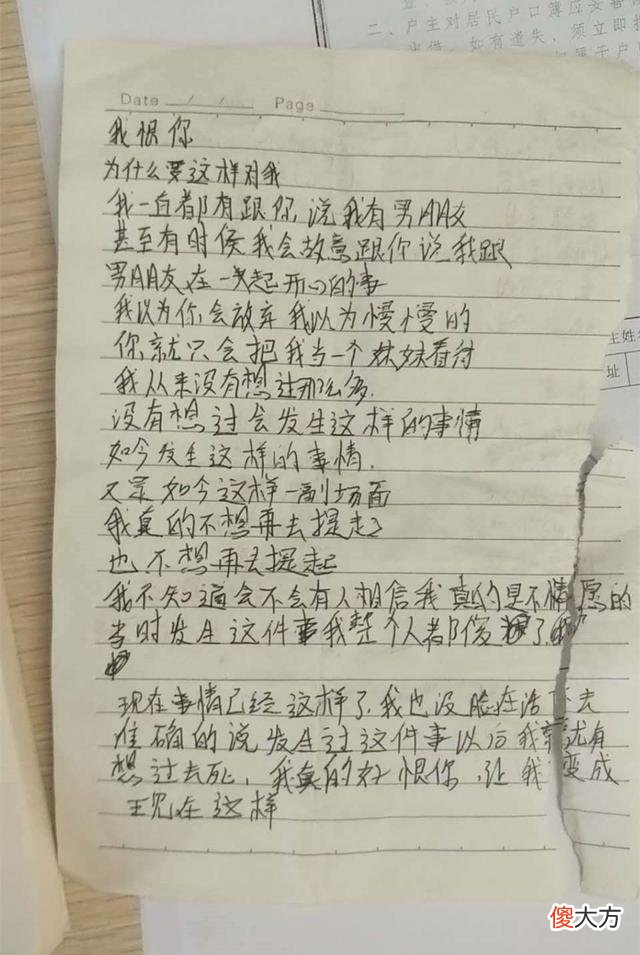 二、户主对居民户口簿应妥善保
出借。如有遗失，须立即报
Date / / Page
我恨你
为什么要这样对我
我一直都有跟你说我有男朋友
甚至有时候我会故意跟你说我跟
男朋友在一起开心的事
我以为你会放弃我以为慢慢的
你就只会把我当一个妹妹看待
我从来没有想过那么多.
没有想过会发生这样的事情
如今发生这样的事情.
又是如今这样一副场面
我真的不想再去提起
也不想再去提起
我不知道会不会有人相信我真的是不情愿的
当时发生这件事我整个人都傻了
现在事情已经这样了.我也没脸在活下去
准确的说发生过这件事以后我就有
想过去死，我真的好恨你，让我变成
现在这样
主姓名
址
傻大方